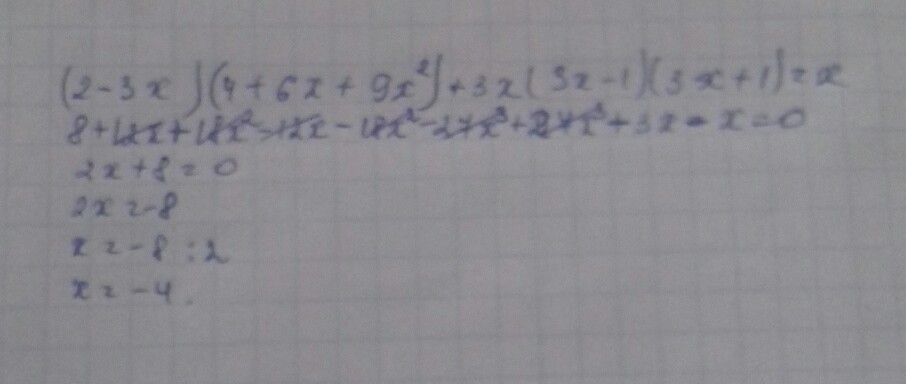 (2-3x)(4+6x+9x²)+3x(3x-1)(3x+1)=x
8+12x+18x²-12x-18x²-27x³+27x³+3x-x=0
2x+8=0
2x=-8
x=-8:2
x=-4.